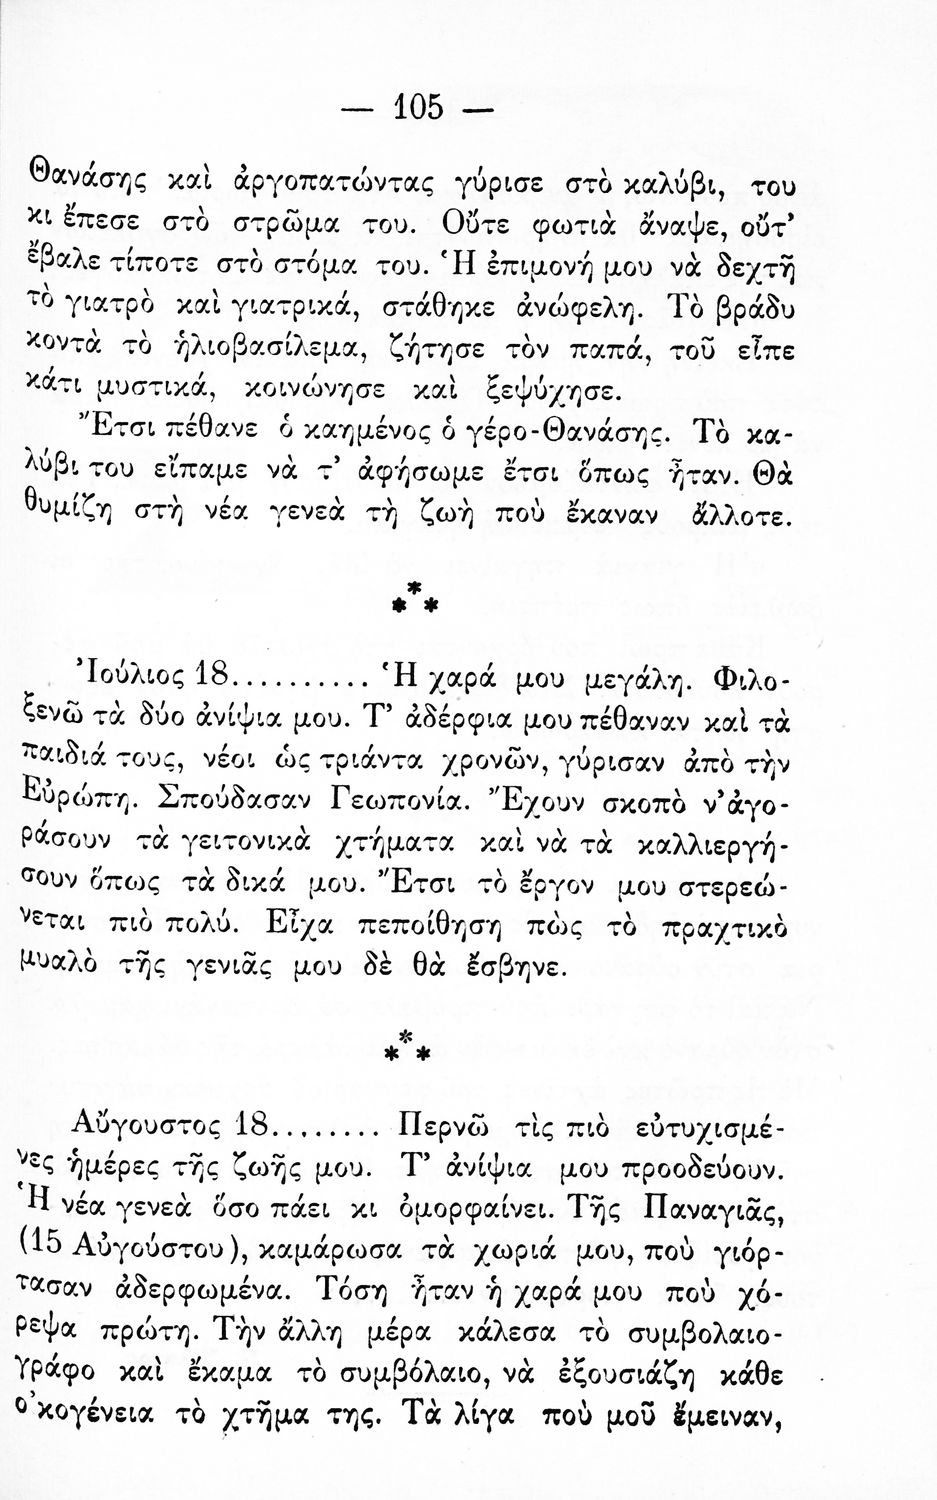 — 105 —
Θανάσης καὶ ἀργοπατώντας γύρισε στὸ καλύβι, του
κι ἔπεσε στὸ στρῶμα του. Οὔτε φωτιὰ ἄναψε, οὔτ’
ἔβαλε τίποτε στὸ στόμα του. Ἡ ἐπιμονή μου νὰ δεχτῆ
τὸ γιατρὸ καὶ γιατρικά, στάθηκε ἀνώφελη. Τὸ βράδυ
κοντὰ τὸ ἡλιοβασίλεμα, ζήτησε τὸν παπά, τοῦ εἶπε
κάτι μυστικά, κοινώνησε καὶ ξεψύχησε.
Ἔτσι πέθανε ὁ καημένος ὁ γέρο-Θανάσης. Τὸ κα-
λύβι του εἴπαμε νὰ τ’ ἀφήσωμε ἔτσι ὅπως ἦταν. Θὰ
θυμίζη στὴ νέα γενεὰ τὴ ζωὴ ποὺ ἔκαναν ἄλλοτε.
***
Ἰούλιος 18.......... Ἡ χαρά μου μεγάλη. Φιλο-
ξενῶ τὰ δύο ἀνίψια μου. Τ’ ἀδέρφια μου πέθαναν καὶ τὰ
παιδιά τους, νέοι ὡς τριάντα χρονῶν, γύρισαν ἀπὸ τὴν
Εὐρώπη. Σπούδασαν Γεωπονία. Ἔχουν σκοπὸ ν’ἀγο-
ράσουν τὰ γειτονικὰ χτήματα καὶ νὰ τὰ καλλιεργή-
σουν ὅπως τὰ δικά μου. Ἔτσι τὸ ἔργον μου στερεώ-
νεται πιὸ πολύ. Εἶχα πεποίθηση πὼς τὸ πραχτικὸ
μυαλὸ τῆς γενιᾶς μου δὲ θὰ ἔσβηνε.
***
Αὔγουστος 18........ Περνῶ τὶς πιὸ εὐτυχισμέ-
νες ἡμέρες τῆς ζωῆς μου. Τ’ ἀνίψια μου προοδεύουν.
Ἡ νέα γενεὰ ὅσο πάει κι ὀμορφαίνει. Τῆς Παναγιᾶς,
(15 Αὐγούστου), καμάρωσα τὰ χωριά μου, ποὺ γιόρ-
τασαν ἀδερφωμένα. Τόση ἦταν ἡ χαρά μου ποὺ χό-
ρεψα πρώτη. Τὴν ἄλλη μέρα κάλεσα τὸ συμβολαιο-
γράφο καὶ ἔκαμα τὸ συμβόλαιο, νὰ ἐξουσιάζη κάθε
ο’κογένεια τὸ χτῆμα της. Τὰ λίγα ποὺ μοῦ ἔμειναν,